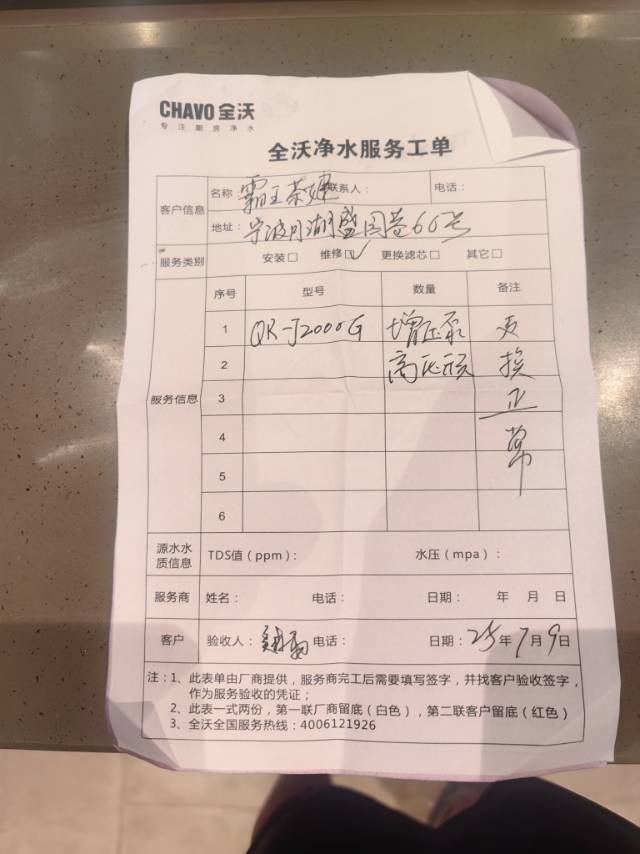 CHAVO 全沃
专注厨房净水
全沃净水服务工单
客户信息
名称 霸王茶姬 联系人： 电话：
地址： 宁波月湖盛园巷66号
服务类别 安装□ 维修☑ 更换滤芯□ 其它□
服务信息
序号 型号 数量 备注
1 QR-J2000G 增压泵
2 高压 换
3 正
4 常
5
6
源水水质信息 TDS值（ppm）： 水压（mpa）：
服务商 姓名： 电话： 日期： 年 月 日
客户 验收人： 电话： 日期：25年7月9日
注：1、此表单由厂商提供，服务商完工后需要填写签字，并找客户验收签字，
作为服务验收的凭证；
2、此表一式两份，第一联厂商留底（白色），第二联客户留底（红色）
3、全沃全国服务热线：4006121926